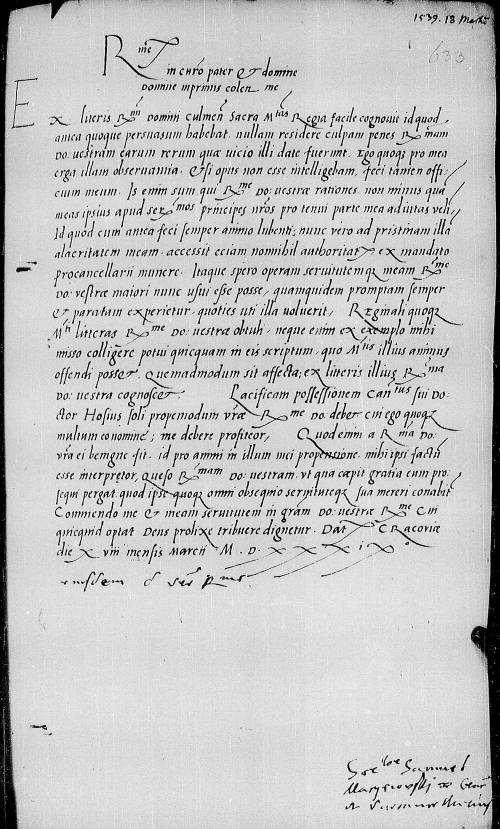 1539. 18 Martii
633
R me
in chro pater et domine
Domine mprimis colen me
Ex literis Rmi Domini Culmen Sacra Mtas Regia facile cognovit id quod,
antea quoque persuasum habebat. nullam residere culpam penes Rmam
Do: vestram earum rerum quæ vicio illi date fuerint. Ego quoque pro mea
erga illam observantia. Etsi opus non esse intelligebam, feci tamen offi:
cium meum. Is enim sum qui Rme Do: vestræ rationes non minus quā
meas ipsius apud ser mos principes nros pro tenui parte mea adiutas veli
Id quod cum antea feci semper animo lubenti; nunc vero ad pristinam illā
alacritatem meam. accessit eciam nonnihil authoritat ex mandato
procancellarii munere. Itaque spero operam servitutemq meam Rme
Do: vestræ maiori nunc usui esse posse, quamquidem promptam semper
et paratam experietur, quoties uti illa voluerit. Reginali quoq
Mti litteras Rme Do: vestræ obtuli. neque enim ex exemplo mihi
misso colligere potui quicquam in eis scriptum, quo Mtis illius animus
offendi posset. Quemadmodum sit affecta; ex literis illius Rma
Do: vestra cognoscet. Pacificam possessionem Can tus sui Do:
ctor Hosius soli propemodum vræ Rme Do: debet cui ego quoq
multum eo nomine; me debere profiteor. Quod enim a Rma Do:
vra ei benigne fit. id pro animi in illum mei propensione. mihi ipsi factū
esse interpretor, Queso Rmam Do: vestram. ut qua cæpit gratia eum pro:
sequi pergat quod ipse quoq omni obsequio servituteq sua mereri conabit
Commendo me et meam servitutem in gram Do: vestræ Rme Cui
quicquid optat Deus prolixe tribuere dignetur. Dat Cracoviæ
die X viii mensis Marcii M. D. X X X i X °
eiusdem d Rme
Samuel